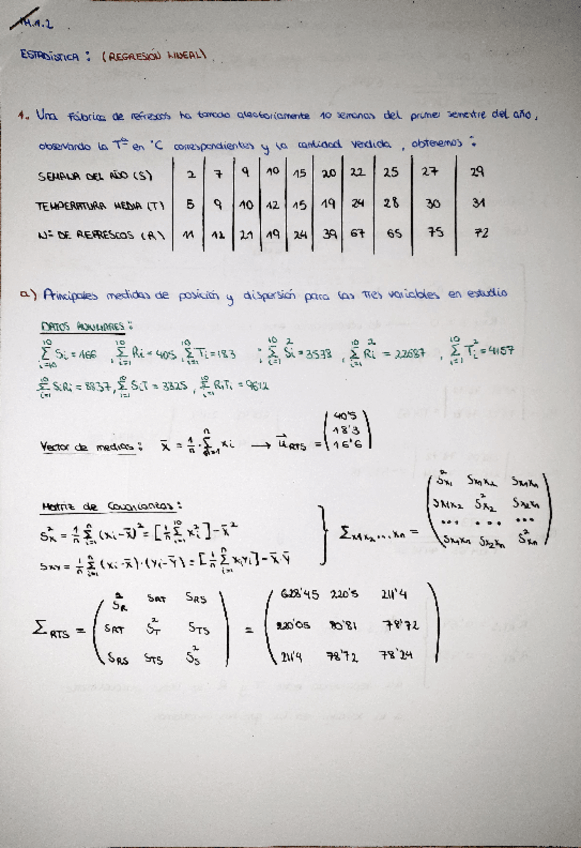 M.1.2
ESTADÍSTICA: (REGRESIÓN LINEAL)
1. Una fábrica de refrescos ha tomado aleatoriamente 10 semanas del primer semestre del año,
observando la Tª en °C correspondientes y la cantidad vendida, obtenemos:
SEMANA DEL AÑO (S) 2 7 9 10 15 20 22 25 27 29
TEMPERATURA MEDIA (T) 5 9 10 12 15 19 24 28 30 31
Nº DE REFRESCOS (R) 11 12 21 19 24 39 67 65 75 72
a) Principales medidas de posición y dispersión para las tres variables en estudio
DATOS AUXILIARES:
∑ Si = 166, ∑ Ri = 405, ∑ Ti = 183 ; ∑ Si² = 3538, ∑ Ri² = 22687, ∑ Ti² = 4157
∑ SiRi = 8837, ∑ SiT = 3325, ∑ RiTi = 9612
Vector de medias: x̄ = 1/n · ∑ xi → u⃗RTS = (40'5 18'3 16'6)
Matriz de Covarianzas:
S²x = 1/n ∑ (xi - x̄)² = [1/n ∑ xi²] - x̄²
Sxy = 1/n ∑ (xi - x̄) · (yi - ȳ) = [1/n ∑ xiyi] - x̄·ȳ
∑x1x2...xn = (S²x1 Sx1x2 Sx1xn
Sx1x2 S²x2 Sx2xn
... ... ...
Sx1xn Sx2xn S²xn)
∑RTS = (S²R SRT SRS
SRT S²T STS
SRS STS S²S)
= (628'45 220'5 211'4
220'05 80'81 78'72
211'4 78'72 78'24)